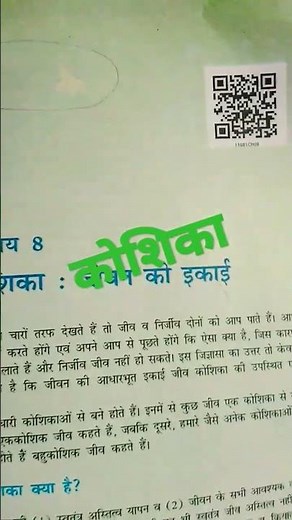 11081CH08
य 8
कोशिका
शिका : जीवन की इकाई
चारों तरफ देखते हैं तो जीव व निर्जीव दोनों को आप पाते हैं। आ
करते होंगे एवं अपने आप से पूछते होंगे कि ऐसा क्या है, जिस कार
लाते हैं और निर्जीव जीव नहीं हो सकते। इस जिज्ञासा का उत्तर तो केव
है कि जीवन की आधारभूत इकाई जीव कोशिका की उपस्थित ए
धारी कोशिकाओं से बने होते हैं। इनमें से कुछ जीव एक कोशिका से
एककोशिक जीव कहते हैं, जबकि दूसरे, हमारे जैसे अनेक कोशिकाओं
होते हैं बहुकोशिक जीव कहते हैं।
का क्या है?
(1) स्वतंत्र अस्तित्व यापन व (2) जीवन के सभी आवश्यक
भी स्वतंत्र जीव अस्तित्व नहीं